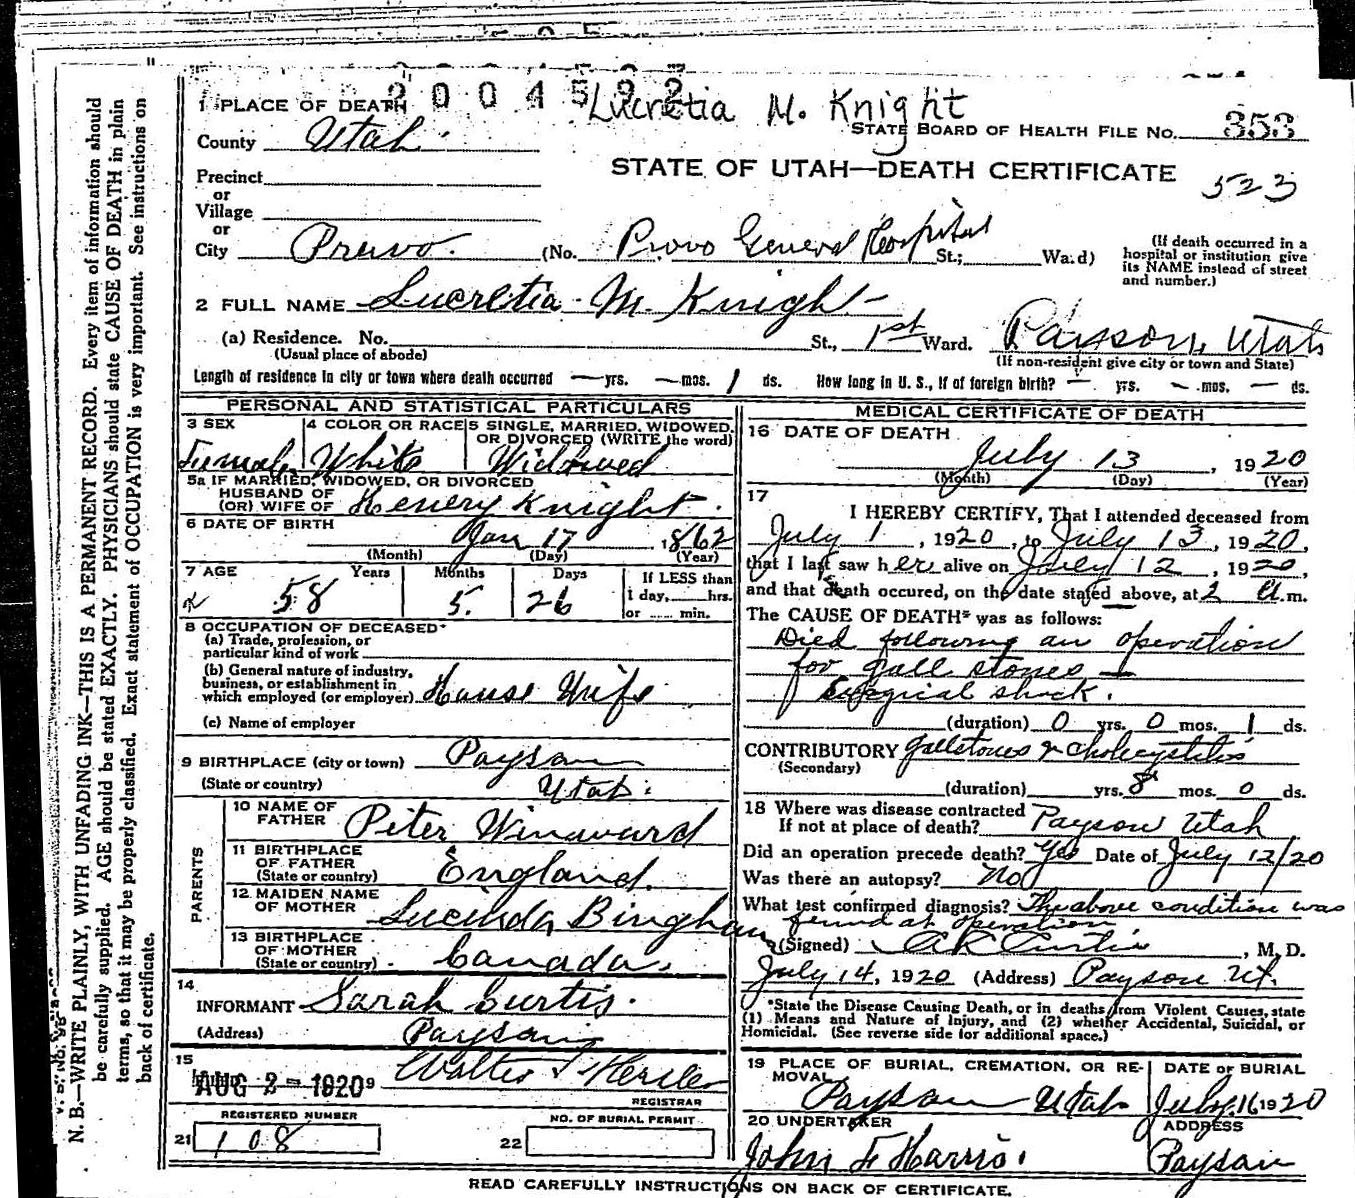 2004592
Lucretia M. Knight
1 PLACE OF DEATH
STATE BOARD OF HEALTH FILE No. 353
County Utah
STATE OF UTAH—DEATH CERTIFICATE 523
Precinct
or
Village
or
City Provo. (No. Provo General Hospital St.; Wa.d)
(If death occurred in a hospital or institution give its NAME instead of street and number.)
2 FULL NAME Lucretia M. Knight
(a) Residence. No. St., 1st Ward. Payson, Utah
(Usual place of abode) (If non-resident give city or town and State)
Length of residence in city or town where death occurred — yrs. — mos. 1 ds. How long in U. S., if of foreign birth? — yrs. — mos. — ds.
PERSONAL AND STATISTICAL PARTICULARS
3 SEX Female
4 COLOR OR RACE White
5 SINGLE, MARRIED, WIDOWED, OR DIVORCED (WRITE the word) Widowed
5a IF MARRIED, WIDOWED, OR DIVORCED
HUSBAND OF
(OR) WIFE OF Henery Knight.
6 DATE OF BIRTH Jan 17 1862
(Month) (Day) (Year)
7 AGE Years Months Days If LESS than
58 5. 26 1 day, hrs.
or min.
8 OCCUPATION OF DECEASED
(a) Trade, profession, or
particular kind of work
(b) General nature of industry,
business, or establishment in
which employed (or employer) House Wife
(c) Name of employer
9 BIRTHPLACE (city or town) Payson
(State or country) Utah.
PARENTS
10 NAME OF FATHER Peter Winward
11 BIRTHPLACE OF FATHER (State or country) England.
12 MAIDEN NAME OF MOTHER Lucinda Bingham
13 BIRTHPLACE OF MOTHER (State or country) Canada.
14
INFORMANT Sarah Curtis.
(Address) Payson
15
AUG 2 - 1920 Walter T. Hersler
REGISTRAR
REGISTERED NUMBER NO. OF BURIAL PERMIT
21 108 22
MEDICAL CERTIFICATE OF DEATH
16 DATE OF DEATH
July 13, 1920
(Month) (Day) (Year)
17
I HEREBY CERTIFY, That I attended deceased from
July 1, 1920, to July 13, 1920,
that I last saw her alive on July 12, 1920,
and that death occured, on the date stated above, at 2 a.m.
The CAUSE OF DEATH* was as follows:
Died following an operation
for gall stones —
Surgical shock.
(duration) 0 yrs. 0 mos. 1 ds.
CONTRIBUTORY gallstones & cholecystitis
(Secondary)
(duration) yrs. 8 mos. 0 ds.
18 Where was disease contracted
If not at place of death? Payson Utah
Did an operation precede death? Yes Date of July 12/20
Was there an autopsy? No
What test confirmed diagnosis? The above condition was
found at operation
(Signed) A K Curtis, M. D.
July 14, 1920 (Address) Payson Ut.
*State the Disease Causing Death, or in deaths from Violent Causes, state
(1) Means and Nature of Injury, and (2) whether Accidental, Suicidal, or
Homicidal. (See reverse side for additional space.)
19 PLACE OF BURIAL, CREMATION, OR REMOVAL Payson Utah
DATE OF BURIAL July 16 1920
20 UNDERTAKER John F Harris.
ADDRESS Payson
READ CAREFULLY INSTRUCTIONS ON BACK OF CERTIFICATE.
N. B.—WRITE PLAINLY, WITH UNFADING INK—THIS IS A PERMANENT RECORD. Every item of information should
be carefully supplied. AGE should be stated EXACTLY. PHYSICIANS should state CAUSE OF DEATH in plain
terms, so that it may be properly classified. Exact statement of OCCUPATION is very important. See instructions on
back of certificate.